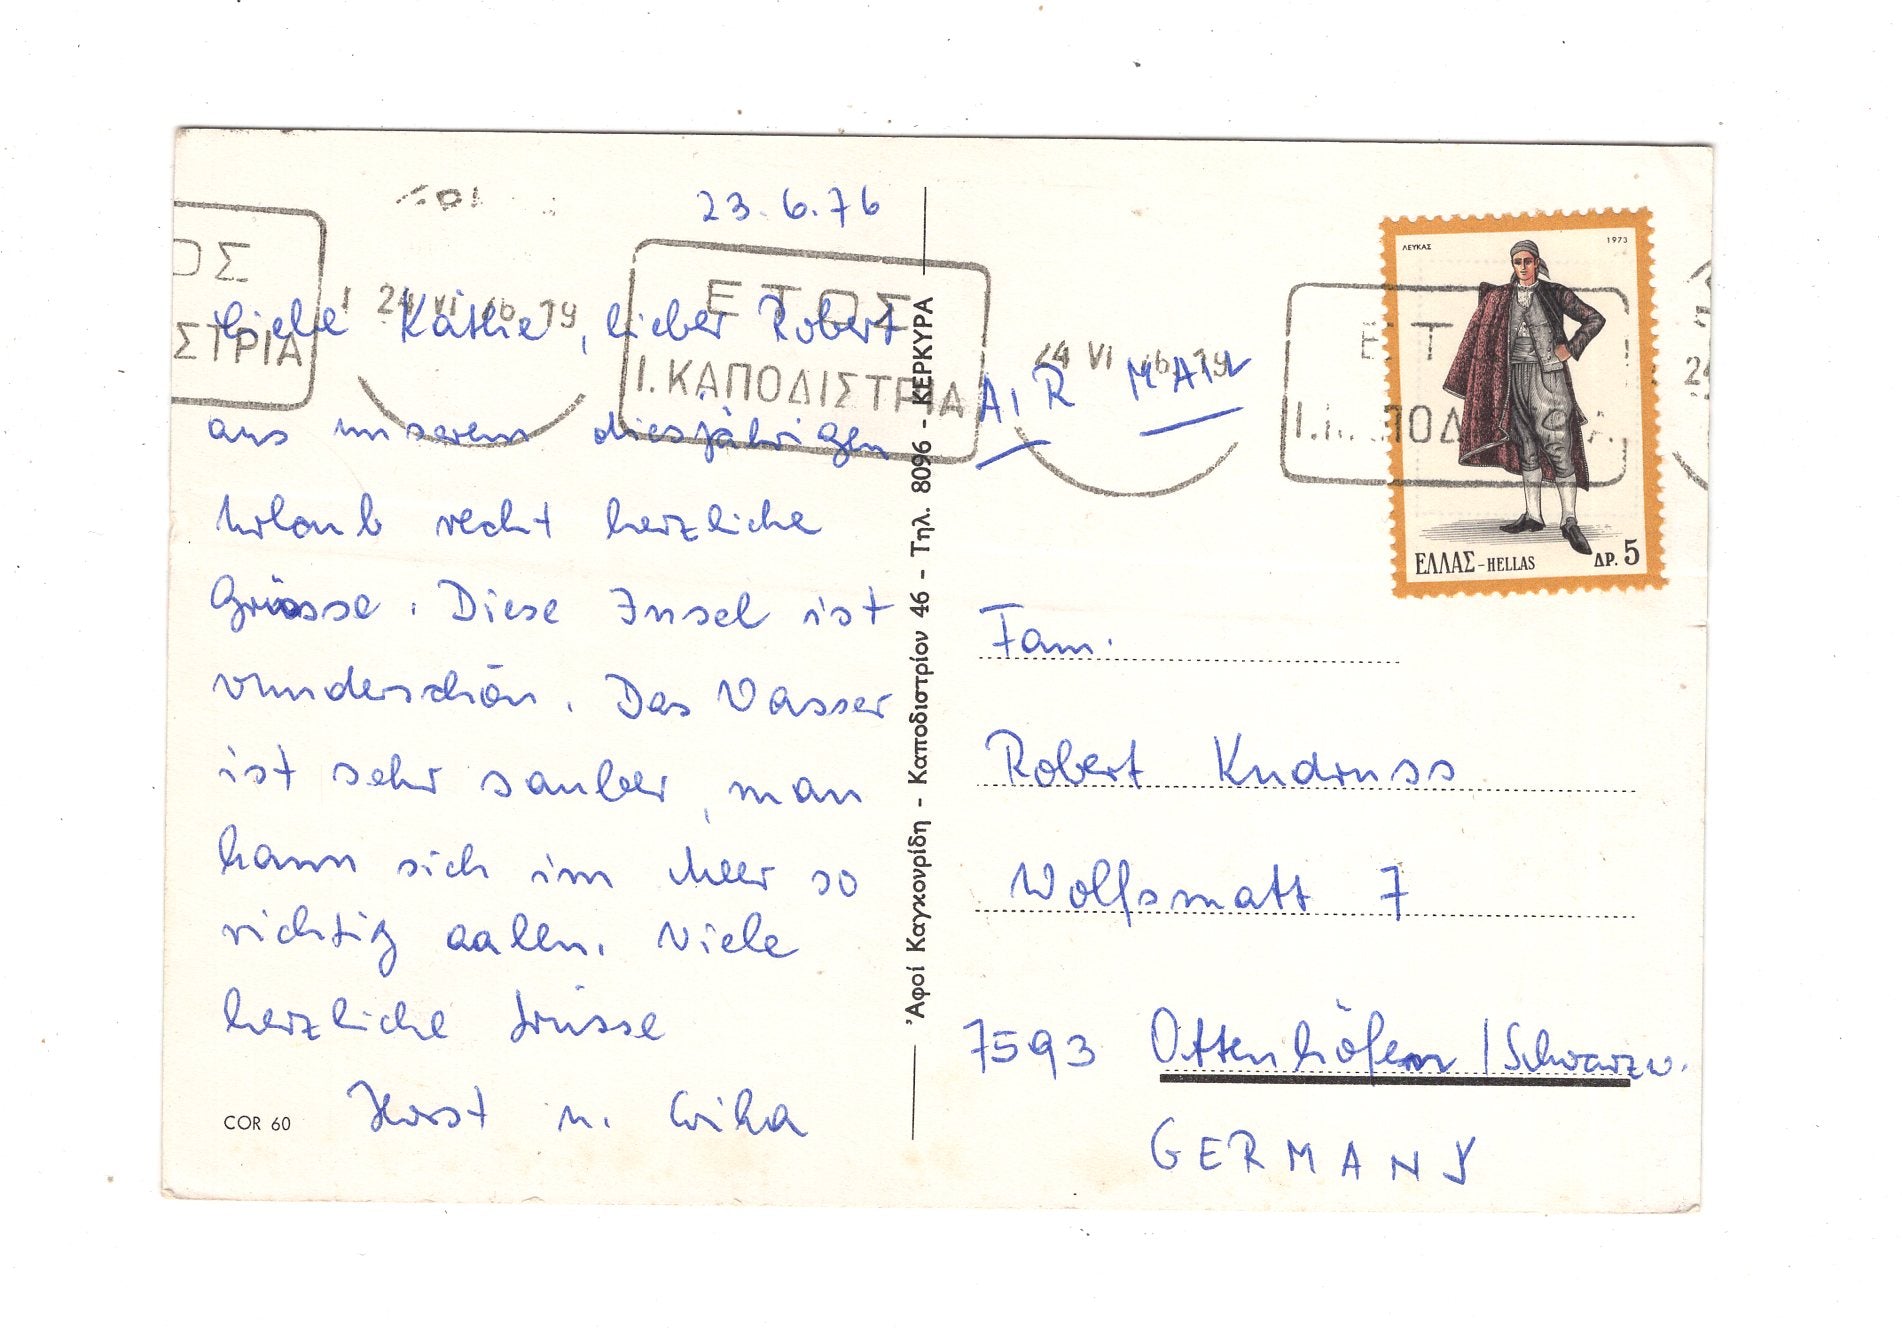 23.6.76
Liebe Käthe, lieber Robert
aus unserem diesjährigen
Urlaub recht herzliche
Grüsse. Diese Insel ist
wunderschön. Das Wasser
ist sehr sauber, man
kann sich im Meer so
richtig aalen. Viele
herzliche Grüsse
Horst u.
COR 60
Ἀφοί Καγκουρίδη - Καποδιστρίου 46 - Τηλ. 8096 - ΚΕΡΚΥΡΑ
ΟΣ
ΣΤΡΙΑ
24 VI 76 19
ΕΤΟΣ
Ι. ΚΑΠΟΔΙΣΤΡΙΑ
24 VI 76 19
ΕΤ
Ι.Κ ΠΟΔ Α
24
AIR MAIL
ΛΕΥΚΑΣ 1973
ΕΛΛΑΣ-HELLAS ΔΡ. 5
Fam.
Robert Knudruss
Wolfsmatt 7
7593 Ottenhöfen / Schwarzw.
GERMANY